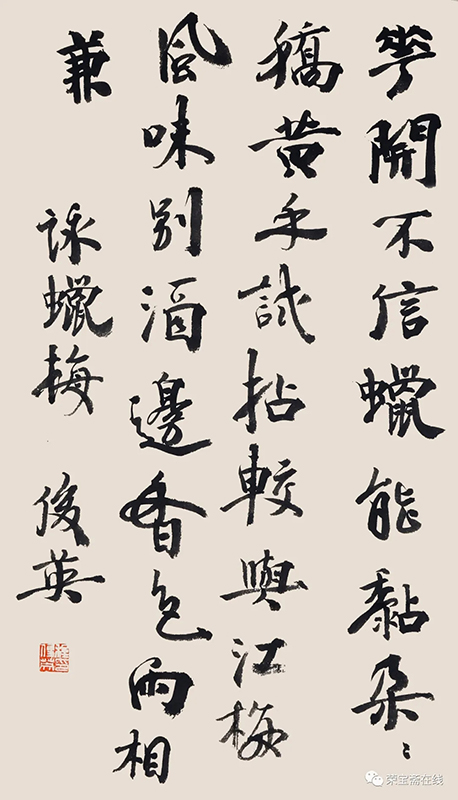 華開不信蠟能黏朵ミ
嬌黄手試拈較與江梅
風味別酒邊香色兩相
兼
詠蠟梅 俊英
荣宝斋在线